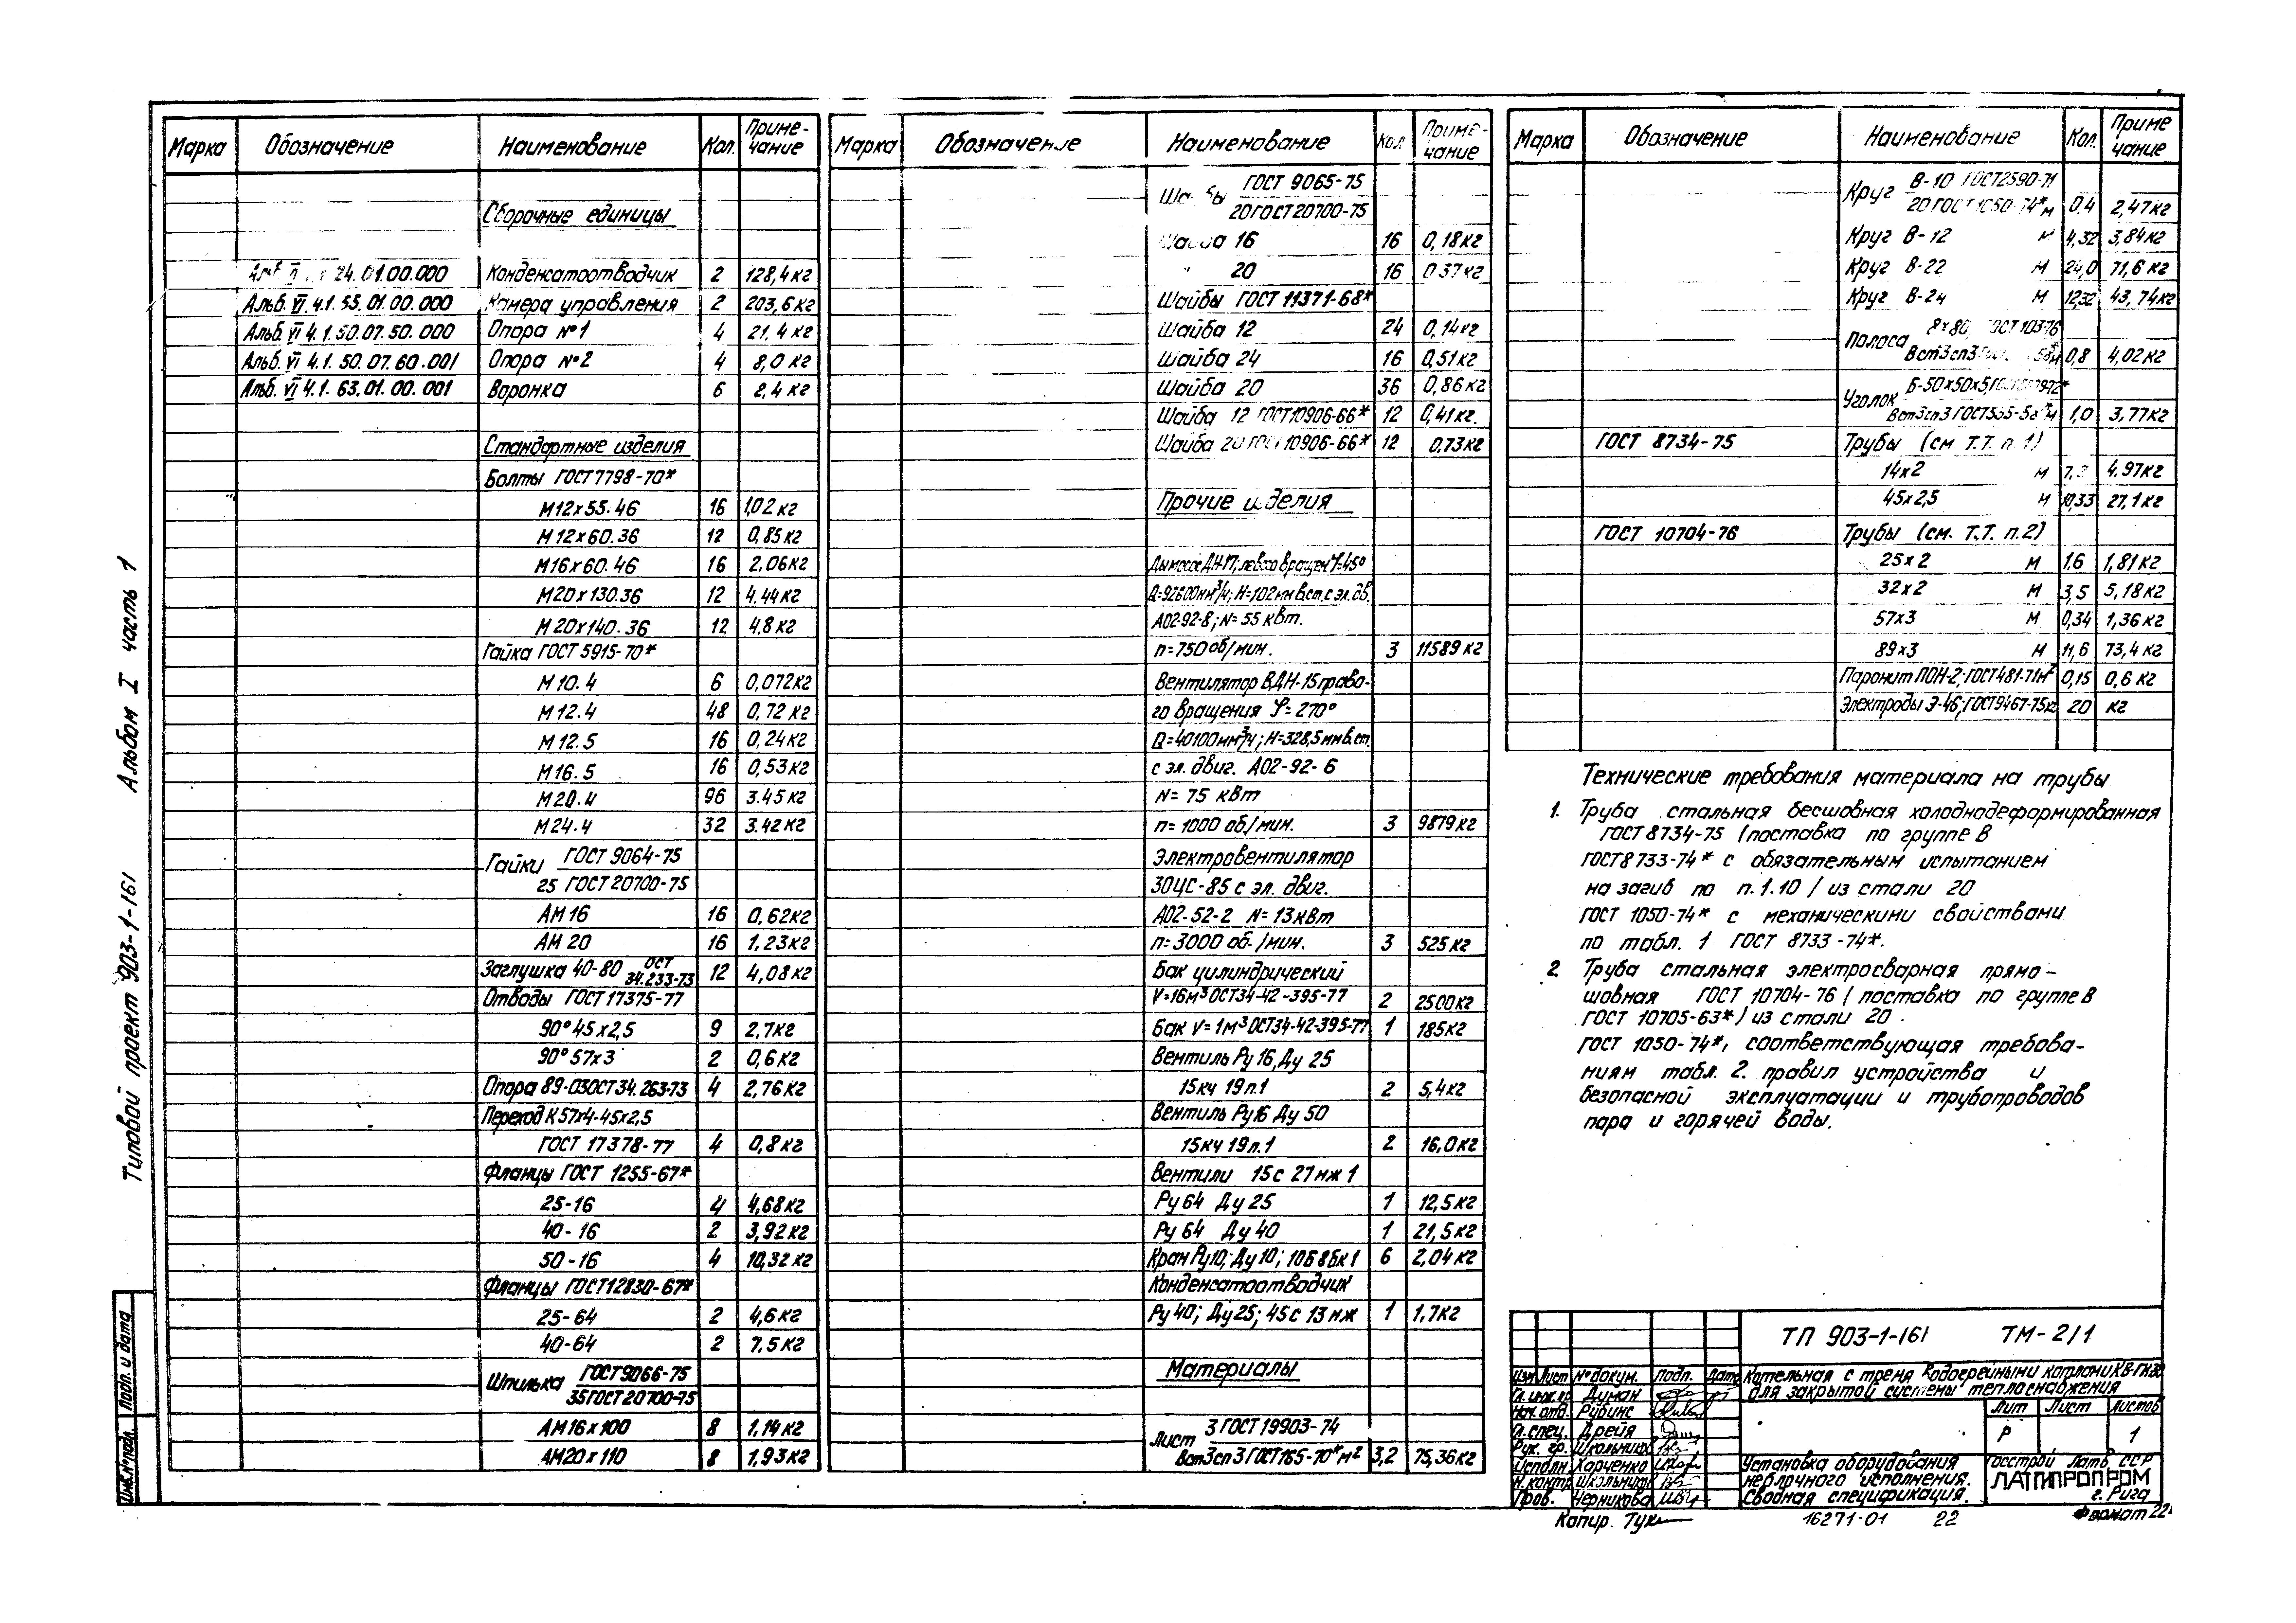 Типовой проект 903-1-161 Альбом I часть 1
Марка Обозначение Наименование Кол. Приме-чание
Сборочные единицы
24.01.00.000 Конденсатоотводчик 2 128,4кг
Альб. VI 4.1.55.01.00.000 Камера управления 2 203,6кг
Альб. VI 4.1.50.07.50.000 Опора №1 4 21,4 кг
Альб. VI 4.1.50.07.60.001 Опора №2 4 8,0 кг
Альб. VI 4.1.63.01.00.001 Воронка 6 2,4 кг
Стандартные изделия
Болты ГОСТ7798-70*
М12х55.46 16 1,02 кг
М12х60.36 12 0,85кг
М16х60.46 16 2.06кг
М20х130.36 12 4.44кг
М20х140.36 12 4,8 кг
Гайка ГОСТ 5915-70*
М10.4 6 0,072кг
М12.4 48 0,72 кг
М12.5 16 0,24кг
М16.5 16 0,53кг
М20.4 96 3.45кг
М24.4 32 3.42кг
Гайки ГОСТ 9064-75
25 ГОСТ20700-75
АМ16 16 0,62кг
АМ20 16 1,23кг
Заглушка 40-80 ОСТ 34.233-73 12 4,08кг
Отводы ГОСТ17375-77
90°45х2,5 9 2,7кг
90°57х3 2 0,6кг
Опора 89-03ОСТ34.263-73 4 2,76кг
Переход К57х4-45х2,5
ГОСТ 17378-77 4 0,8кг
Фланцы ГОСТ 1255-67*
25-16 4 4,68кг
40-16 2 3,92кг
50-16 4 10,32кг
Фланцы ГОСТ12830-67*
25-64 2 4,6кг
40-64 2 7.5кг
Шпилька ГОСТ9066-75
35ГОСТ20700-75
АМ16х100 8 1,14кг
АМ20х110 8 1,93кг
Марка Обозначение Наименование Кол Приме-чание
ГОСТ 9065-75
20ГОСТ20700-75
Шайба 16 16 0,18кг
" 20 16 0,37кг
Шайбы ГОСТ 11371-68*
Шайба 12 24 0,14кг
Шайба 24 16 0,51кг
Шайба 20 36 0,86кг
Шайба 12 ГОСТ10906-66* 12 0,41кг.
Шайба 20 ГОСТ10906-66* 12 0,73кг
Прочие изделия
Дымосос ДН-17; левого вращен φ=45°
Q=92600нм³/ч; Н=102мм в.ст. с эл. дв.
А02-92-8; N=55 квт.
n=750об/мин. 3 11589 кг
Вентилятор ВДН-15право-
го вращения φ=270°
Q=40100нм³/ч; Н=328,5мм в.ст.
с эл. двиг. А02-92-6
N= 75 квт
n= 1000 об./мин. 3 9879кг
Электровентилятор
30ЦС-85 с эл. двиг.
А02-52-2 N=13квт
n=3000 об./мин. 3 525кг
Бак цилиндрический
V=16м³ ОСТ34-42-395-77 2 2500кг
Бак V=1м³ ОСТ34-42-395-77 1 185кг
Вентиль Ру16, Ду 25
15кч 19п.1 2 5,4кг
Вентиль Ру16 Ду 50
15кч 19п.1 2 16,0кг
Вентили 15с 27нж 1
Ру64 Ду 25 1 12,5кг
Ру64 Ду 40 1 21,5кг
Кран Ру10; Ду10; 10Б8бк1 6 2,04кг
Конденсатоотводчик
Ру40; Ду25; 45с 13нж 1 1,7кг
Материалы
Лист 3 ГОСТ19903-74
Вст3сп3ГОСТ165-70* м² 3,2 75,36кг
Марка Обозначение Наименование Кол. Приме чание
Круг В-10 ГОСТ2590-71
20 ГОСТ1050-74* м 0,4 2,47кг
Круг В-12 м 4,32 3,84кг
Круг В-22 м 24,0 71,6 кг
Круг В-24 м 12,32 43,74кг
Полоса 8х80 ГОСТ103-76
Вст3сп3 м 0,8 4,02кг
Уголок Б-50х50х5
Вст3сп3 ГОСТ535-58* м 1,0 3,77кг
ГОСТ 8734-75 Трубы (см Т.Т. п 1)
14х2 м 4,97кг
45х2,5 м 10,33 27,1кг
ГОСТ 10704-76 Трубы (см. Т.Т. п.2)
25х2 м 1,6 1,81кг
32х2 м 3,5 5,18кг
57х3 м 0,34 1,36кг
89х3 м 11,6 73,4 кг
Паронит ПОН-2; ГОСТ481-71м² 0,15 0,6 кг
Электроды Э-46; ГОСТ9467-75кг 20 кг
Технические требования материала на трубы
1. Труба стальная бесшовная холоднодеформированная
ГОСТ8734-75 (поставка по группе В
ГОСТ8733-74* с обязательным испытанием
на загиб по п.1.10 / из стали 20
ГОСТ 1050-74* с механическими свойствами
по табл. 1 ГОСТ 8733-74*.
2. Труба стальная электросварная прямо-
шовная ГОСТ 10704-76 ( поставка по группе В
ГОСТ 10705-63*) из стали 20.
ГОСТ 1050-74*, соответствующая требова-
ниям табл. 2. правил устройства и
безопасной эксплуатации и трубопроводов
пара и горячей воды.
ТП 903-1-161 ТМ-2/1
Изм Лист №докум. Подп. Дата
Гл. инж. пр Думан
Нач. отд. Рубинс
Гл. спец. Дрейя
Рук. гр. Школьник
Исполн Харченко
Н. контр Школьник
Пров. Черникова
Котельная с тремя водогрейными котлами КВ-ГМ30
для закрытой системы теплоснабжения
Лит Лист Листов
Р 1
Установка оборудования
неблочного исполнения.
Сводная спецификация.
Госстрой Латв ССР
ЛАТГИПРОПРОМ
г. Рига
Копир. Тук
16271-01 22
Формат 22
Подп. и дата
Инв.№подл.